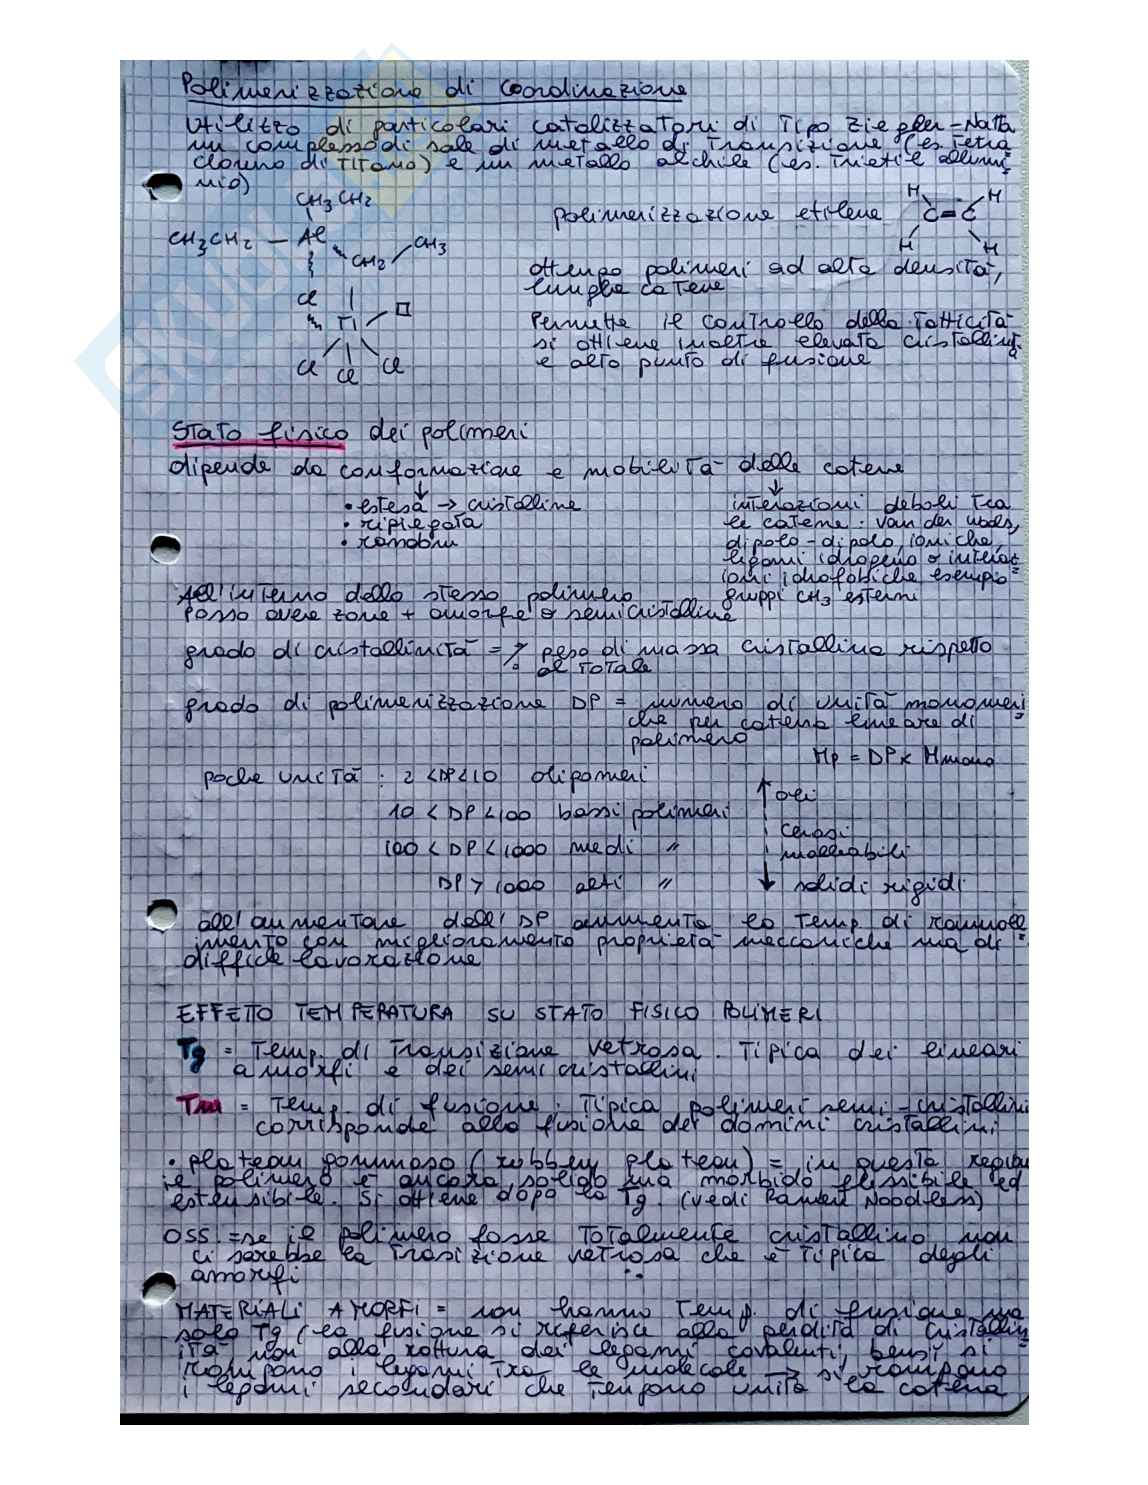 Polimerizzazione di coordinazione
Utilizzo di particolari catalizzatori di tipo Ziegler-Natta
un complesso di sale di metallo di transizione (es. Tetra
cloruro di Titanio) e un metallo alchile (es. Trietil allumi
nio)
CH3 CH2
CH3CH2 — Al
CH2
CH3
Cl
Ti
Cl
Cl
Cl
polimerizzazione etilene
H
H
C=C
H
H
ottengo polimeri ad alta densità,
lunghe catene
Permette il controllo della tatticità
si ottiene inoltre elevata cristallinità
e alto punto di fusione
Stato fisico dei polimeri
dipende da conformazione e mobilità delle catene
• estesa → cristalline
• ripiegata
• random
interazioni deboli tra
le catene: van der waals,
dipolo-dipolo, ioniche,
legami idrogeno o interaz
ioni idrofobiche esempio
gruppi CH3 esterni
All'interno dello stesso polimero
posso avere zone + amorfe o semicristalline
grado di cristallinità = % peso di massa cristallina rispetto
al totale
grado di polimerizzazione DP = numero di unità monomeri
che per catena lineare di
polimero
Mp = DP x Mmono
poche unità : 2 < DP < 10 oligomeri
10 < DP < 100 bassi polimeri
100 < DP < 1000 medi "
DP > 1000 alti "
oli
cerosi
malleabili
solidi rigidi
all'aumentare dell' DP aumenta la temp. di rammoll
imento con miglioramento proprietà meccaniche ma di
difficile lavorazione
EFFETTO TEMPERATURA SU STATO FISICO POLIMERI
Tg = Temp. di transizione vetrosa. Tipica dei lineari
amorfi e dei semicristallini
Tm = Temp. di fusione. Tipica polimeri semi-cristallini
corrisponde alla fusione dei domini cristallini
• plateau gommoso (rubbery plateau) = in questa regione
il polimero è ancora solido ma morbido flessibile ed
estensibile. Si ottiene dopo la Tg. (vedi Ramen Noodless)
OSS. = se il polimero fosse totalmente cristallino non
ci sarebbe la trasizione vetrosa che è tipica degli
amorfi
MATERIALI AMORFI = non hanno temp. di fusione ma
solo Tg (la fusione si riferisce alla perdita di cristallin
ità non alla rottura dei legami covalenti bensì si
rompono i legami tra le molecole → si rompono
i legami secondari che tengono unita la catena